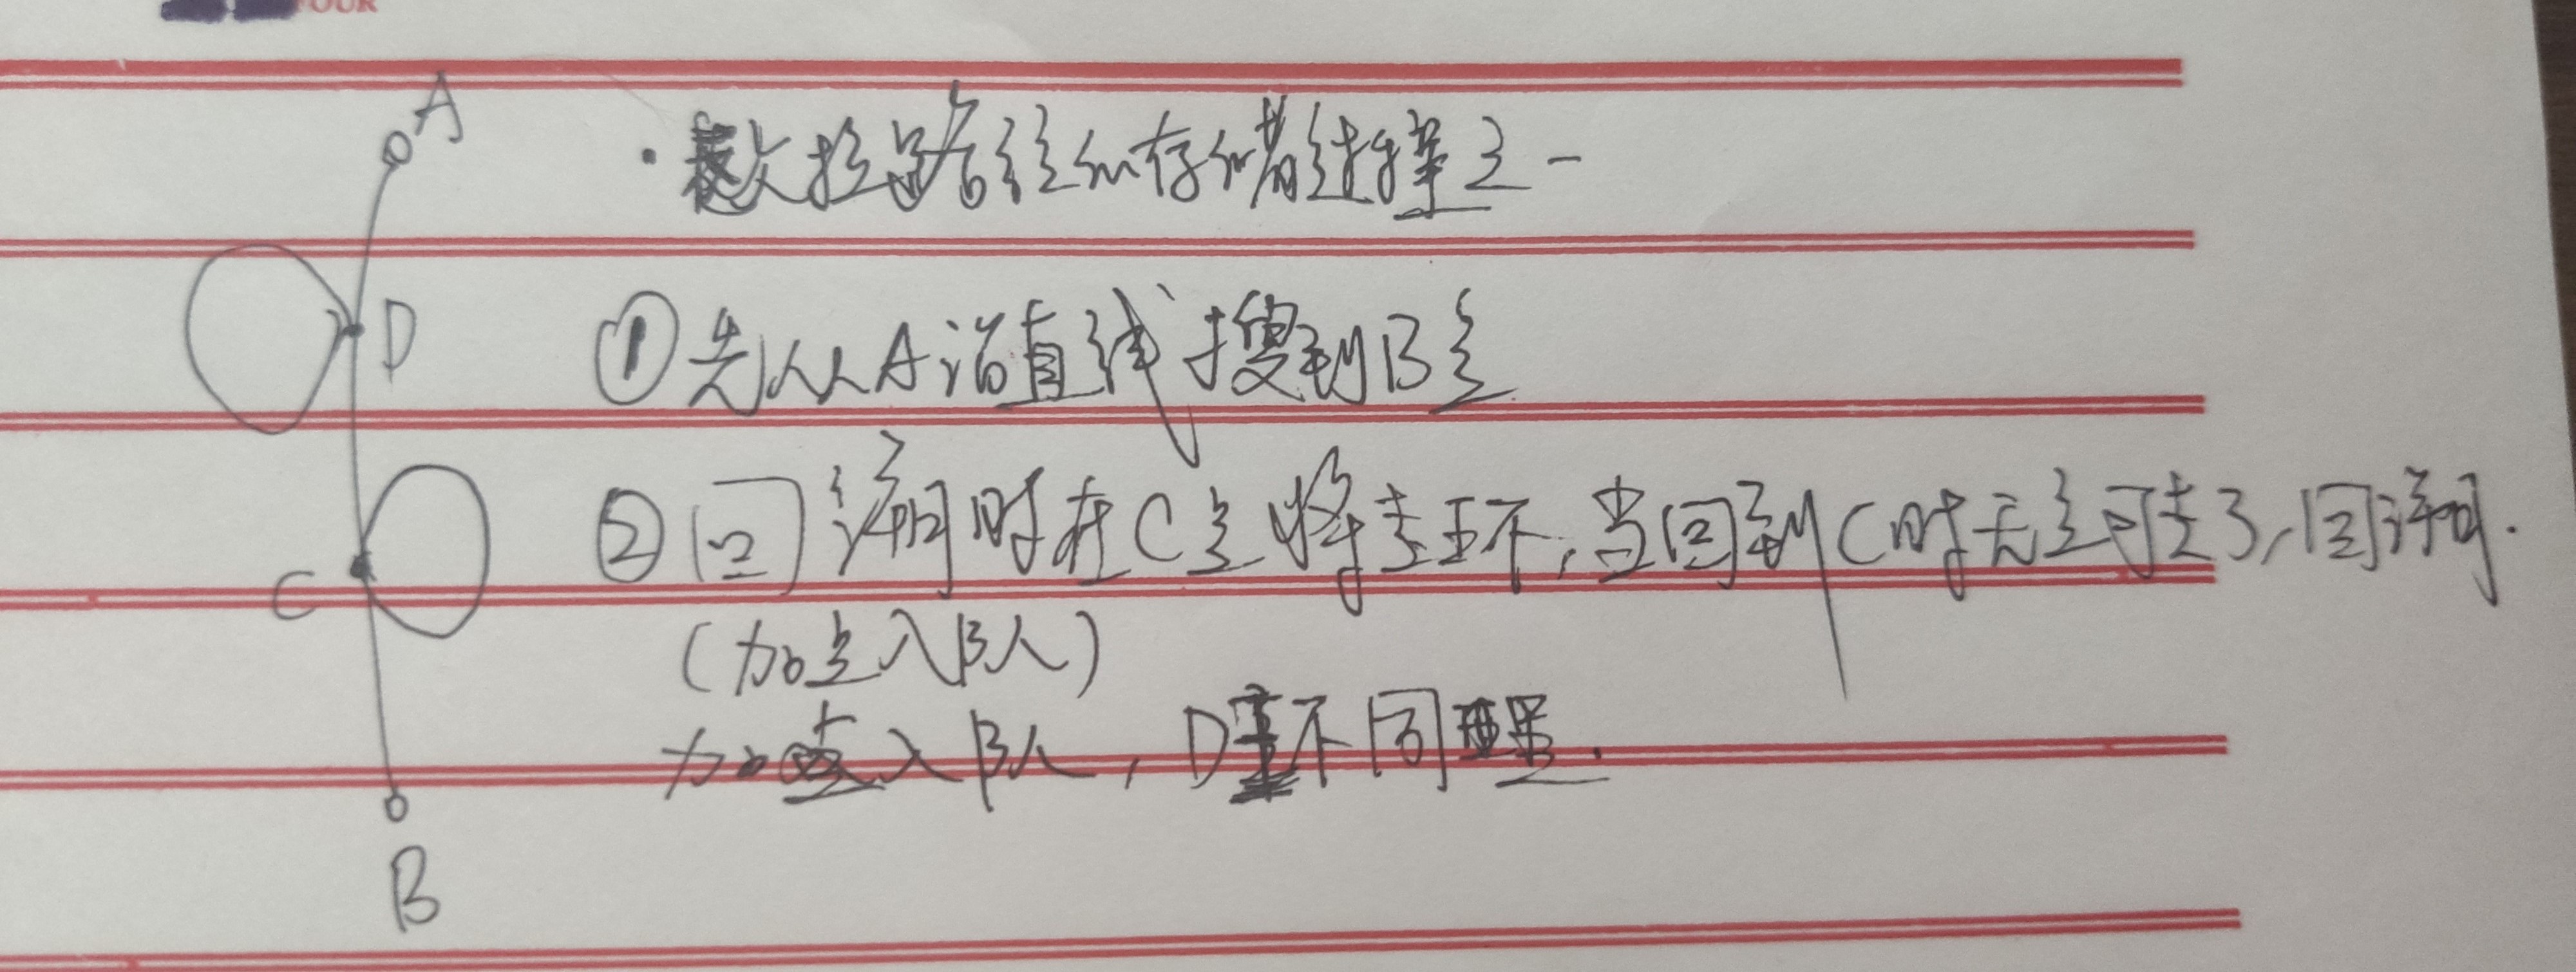 OUR
A
·欧拉路径的存储过程之一
D
①先从A沿直线搜到B点
②回溯时在C点将走环,当回到C时无点可走了,回溯.
C
(加点入队)
加点入队,D环同理.
B